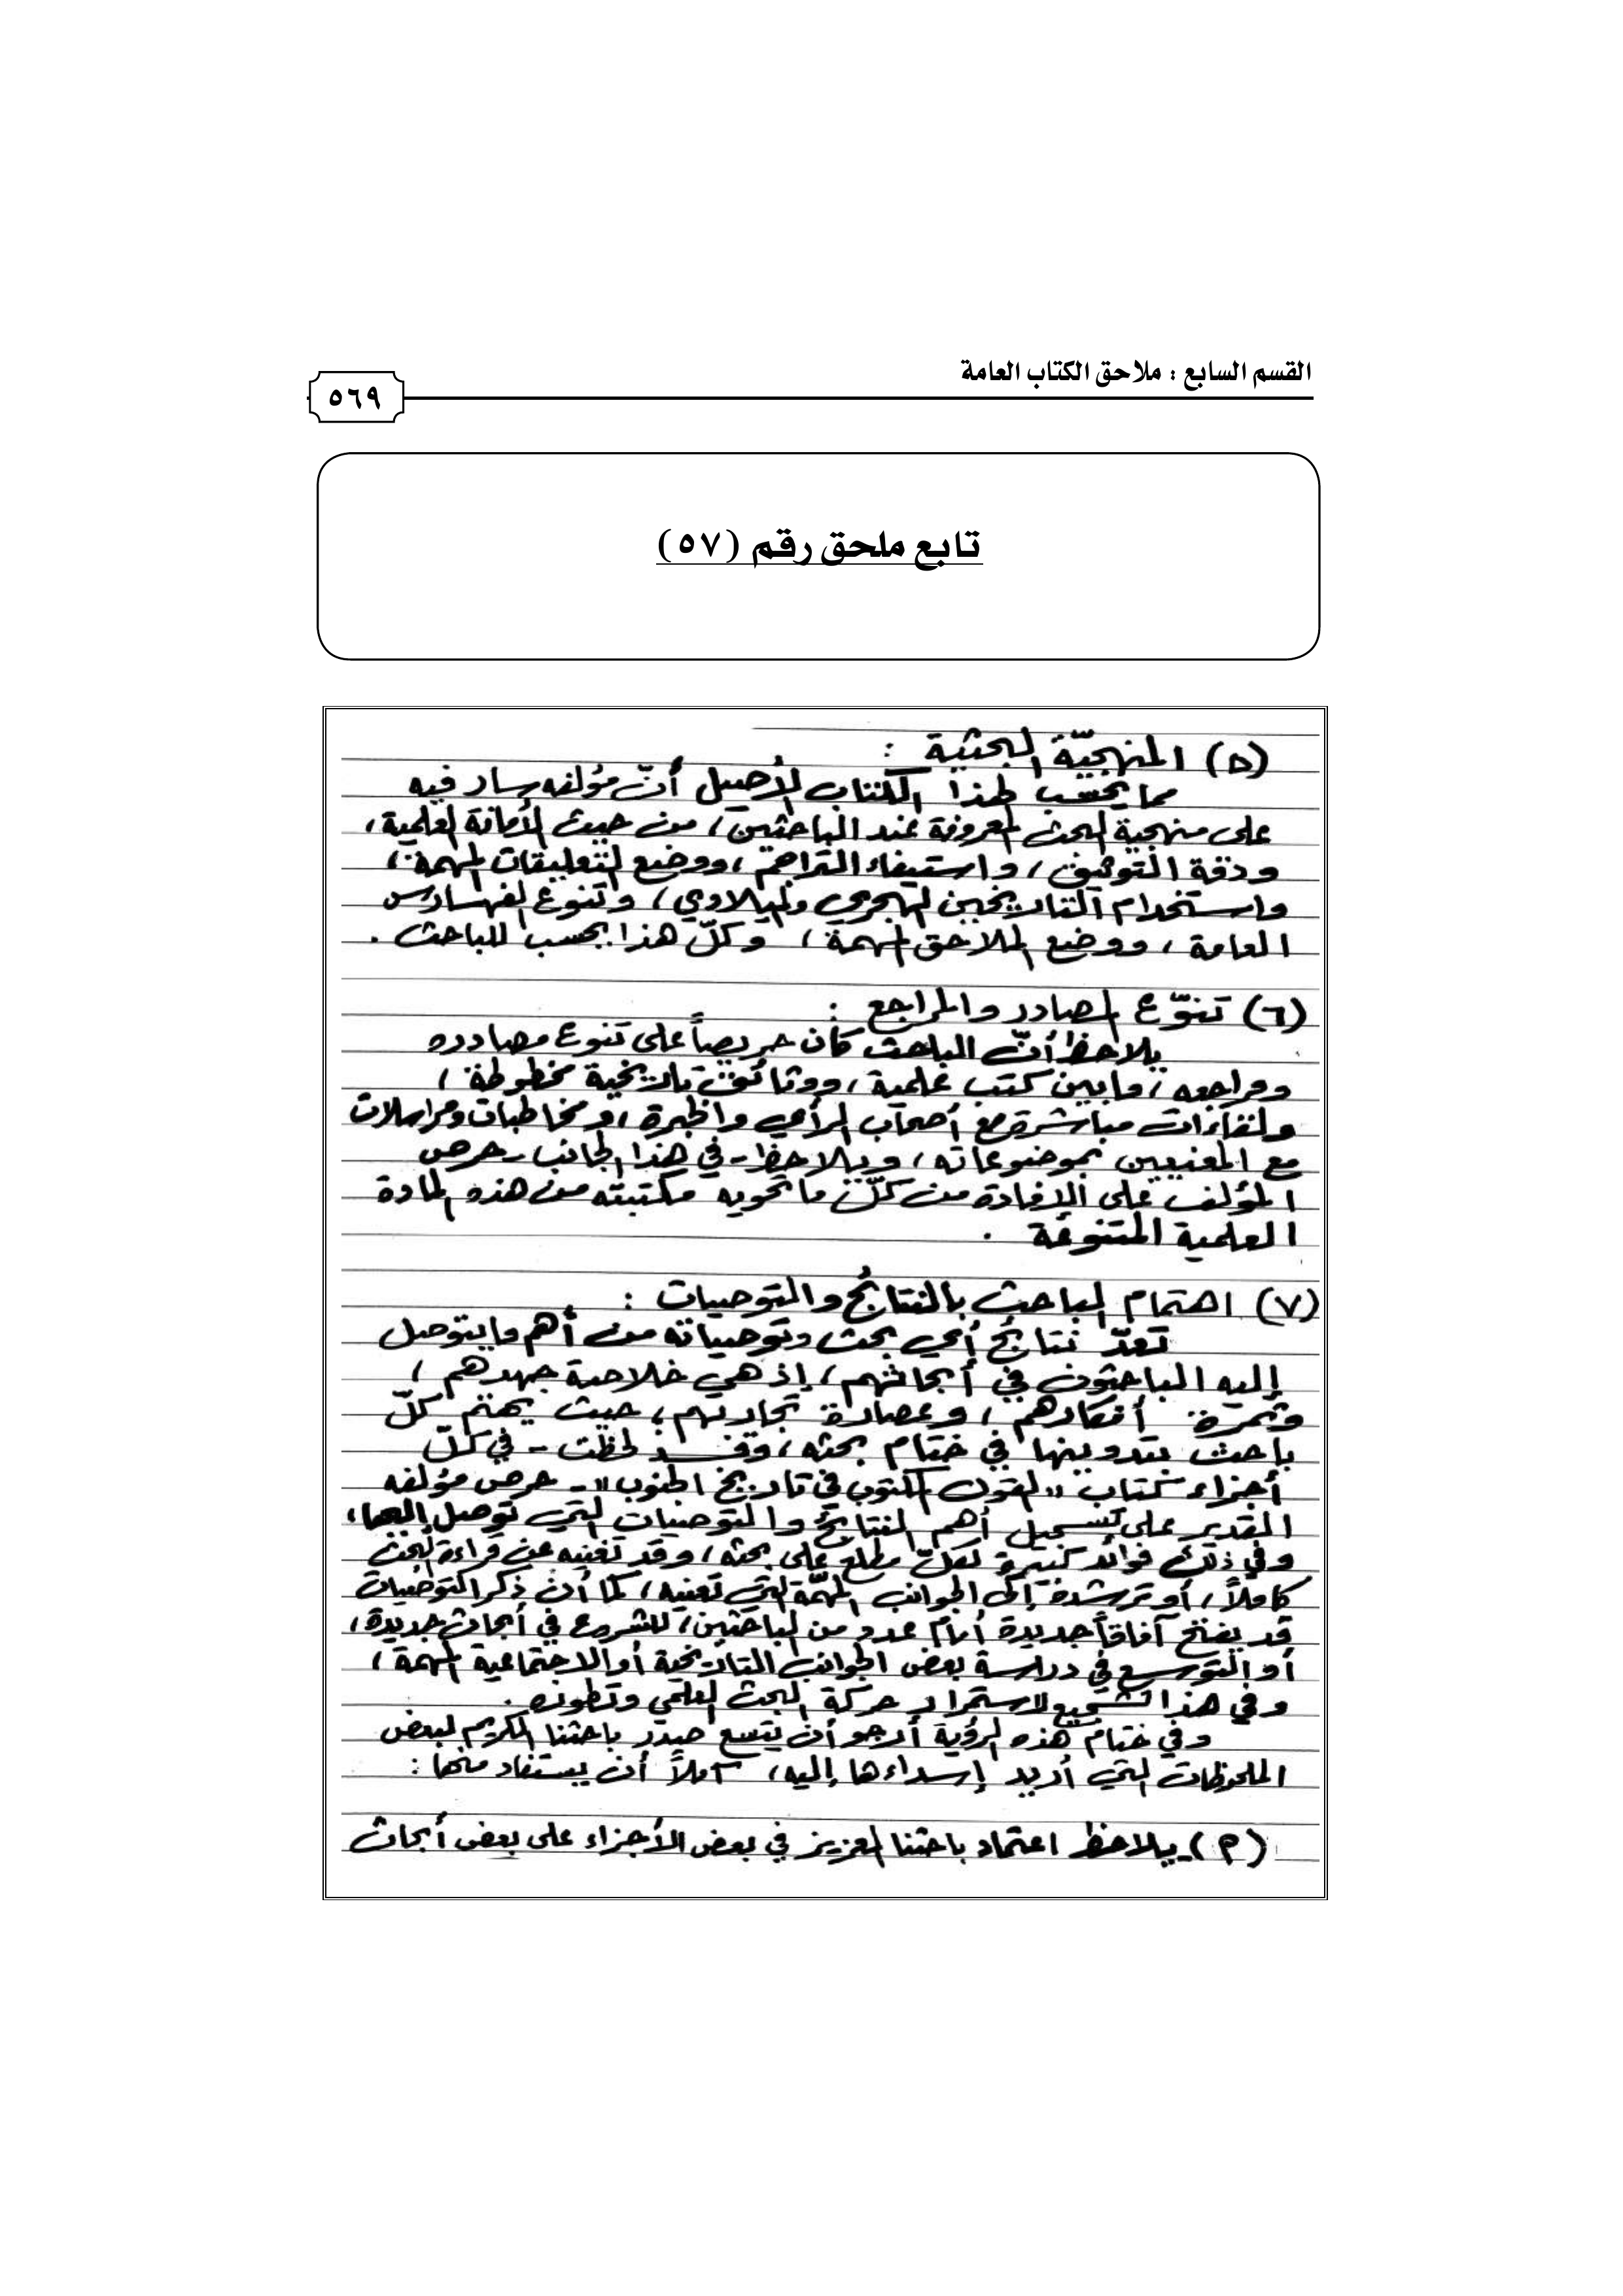 القسم السابع : ملاحق الكتاب العامة
٥٦٩
تابع ملحق رقم (٥٧)
(٥) المنهجيّة البحثية :
مما يحسب لهذا الكتاب الأصيل أنّ مؤلفه سار فيه
على منهجية البحث المعروفة عند الباحثين، من حيث الأمانة العلمية،
ودقة التوثيق، واستيفاء التراجم، ووضع التعليقات المهمة،
واستخدام التاريخين الهجري والميلادي، وتنوع الفهارس
العامة، ووضع الملاحق المهمة، وكلّ هذا يحسب للباحث.
(٦) تنوّع المصادر والمراجع :
يلاحظ أنّ الباحث كان حريصاً على تنوع مصادره
ومراجعه، ما بين كتب علمية، ووثائق تاريخية مخطوطة،
ولقاءات مباشرة مع أصحاب الرأي والخبرة، ومخاطبات ومراسلات
مع المعنيين بموضوعاته، ويلاحظ - في هذا الجانب - حرص
المؤلف على الإفادة من كلّ ما تحويه مكتبته من هذه المادة
العلمية المتنوعة .
(٧) اهتمام الباحث بالنتائج والتوصيات :
تعدّ نتائج أي بحث وتوصياته من أهم ما يتوصل
إليه الباحثون في أبحاثهم، إذ هي خلاصة جهدهم،
وثمرة أفكارهم، وعصارة تجاربهم؛ حيث يهتم كلّ
باحث بتدوينها في ختام بحثه، وقد لحظت - في كلّ
أجزاء كتاب "القول المكتوب في تاريخ الجنوب" - حرص مؤلفه
القدير على تسجيل أهم النتائج والتوصيات التي توصل إليها،
وفي ذلك فوائد كبيرة لكلّ مطلع على بحثه، وقد تغنيه عن قراءة البحث
كاملاً، أو ترشده إلى الجوانب المهمّة التي تعنيه، كما أن ذكر التوصيات
قد يفتح آفاقاً جديدة أمام عدد من الباحثين، للشروع في أبحاث جديدة،
أو التوسع في دراسة بعض الجوانب التاريخية أو الاجتماعية المهمة،
وفي هذا تشجيع لاستمرار حركة البحث العلمي وتطوره.
وفي ختام هذه الرؤية أرجو أن يتسع صدر باحثنا الكريم لبعض
الملحوظات التي أريد إسداءها إليه، آملاً أن يستفاد منها :
(٢) يلاحظ اعتماد باحثنا العزيز في بعض الأجزاء على بعض أبحاث